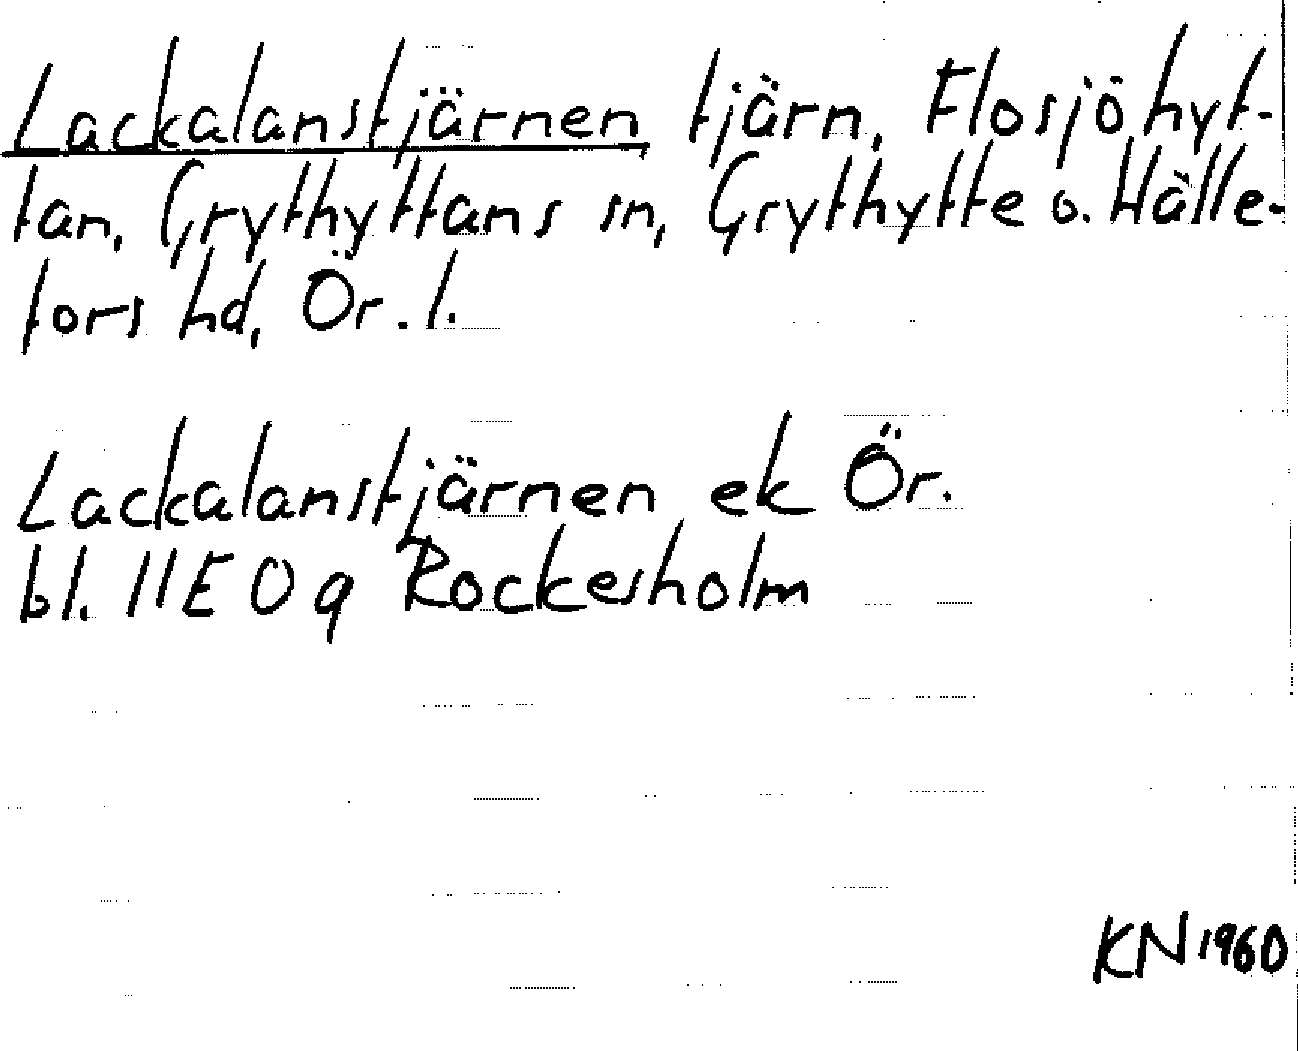 Lackalanstjärnen tjärn, Flosjöhyt-
tan, Grythyttans sn, Grythytte o. Hälle-
fors hd, Ör. l.
Lackalanstjärnen ek Ör.
bl. 11E 0q Rockesholm
KN 1960